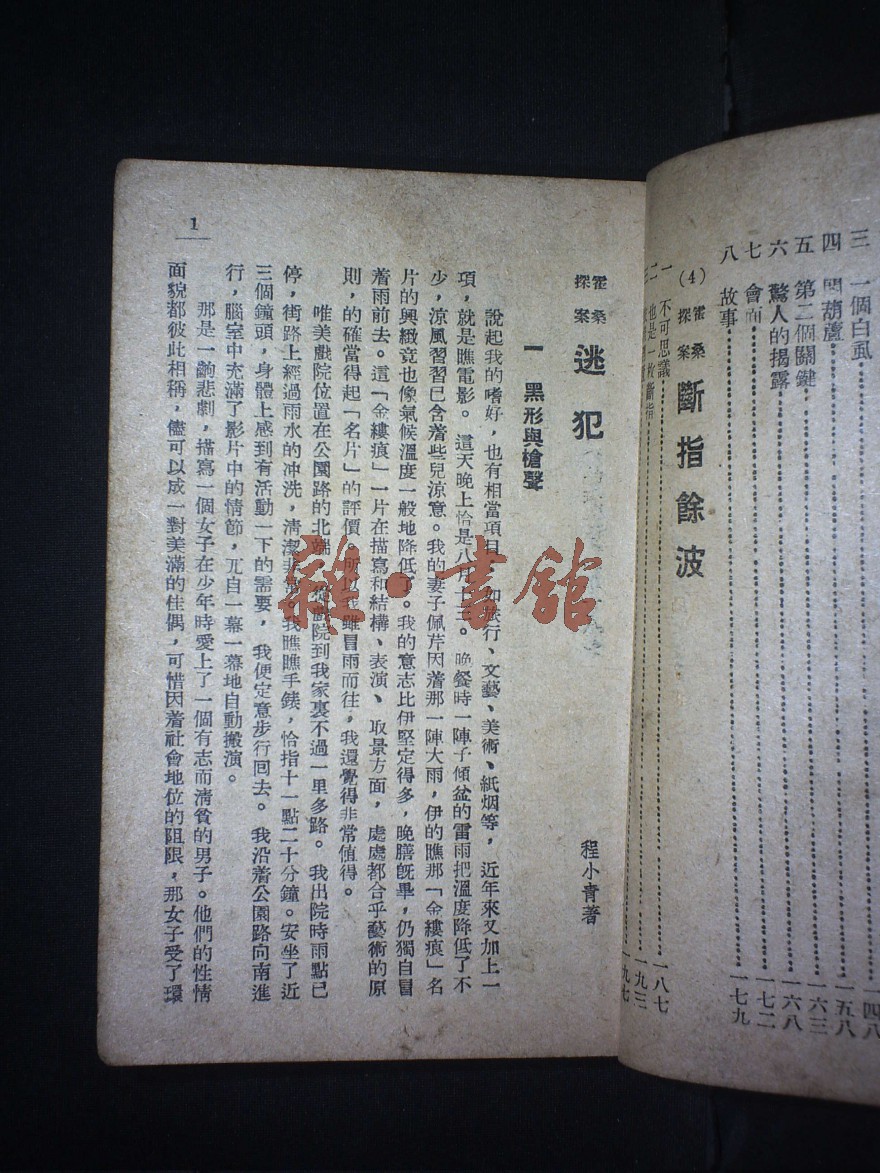 三 一個白虱 一四八
四 悶葫蘆 一五八
五 第二個關鍵 一六三
六 驚人的揭露 一六八
七 會面 一七二
八 故事 一七九
(4) 霍桑探案 斷指餘波
一 不可思議 一八七
二 也是一枚斷指 一九三
三 一九七
霍桑探案 逃犯
程小青著
一 黑形與槍聲
說起我的嗜好，也有相當項目，如旅行、文藝、美術、紙烟等，近年來又加上一
項，就是瞧電影。這天晚上恰是八月十二。晚餐時一陣子傾盆的雷雨把溫度降低了不
少，涼風習習已含着些兒涼意。我的妻子佩芹因着那一陣大雨，伊的瞧那「金縷痕」名
片的興緻竟也像氣候溫度一般地降低了。我的意志比伊堅定得多，晚膳旣畢，仍獨自冒
着雨前去。這「金縷痕」一片在描寫和結構、表演、取景方面，處處都合乎藝術的原
則，的確當得起「名片」的評價。所以我雖冒雨而往，我還覺得非常値得。
唯美戲院位置在公園路的北端，從戲院到我家裏不過一里多路。我出院時雨點已
停，街路上經過雨水的冲洗，清潔非常。我瞧瞧手錶，恰指十一點二十分鐘。安坐了近
三個鐘頭，身體上感到有活動一下的需要，我便定意步行回去。我沿着公園路向南進
行，腦室中充滿了影片中的情節，兀自一幕一幕地自動搬演。
那是一齣悲劇，描寫一個女子在少年時愛上了一個有志而清貧的男子。他們的性情
面貌都彼此相稱，儘可以成一對美滿的佳偶，可惜因着社會地位的阻限，那女子受了環
1
雜·書館